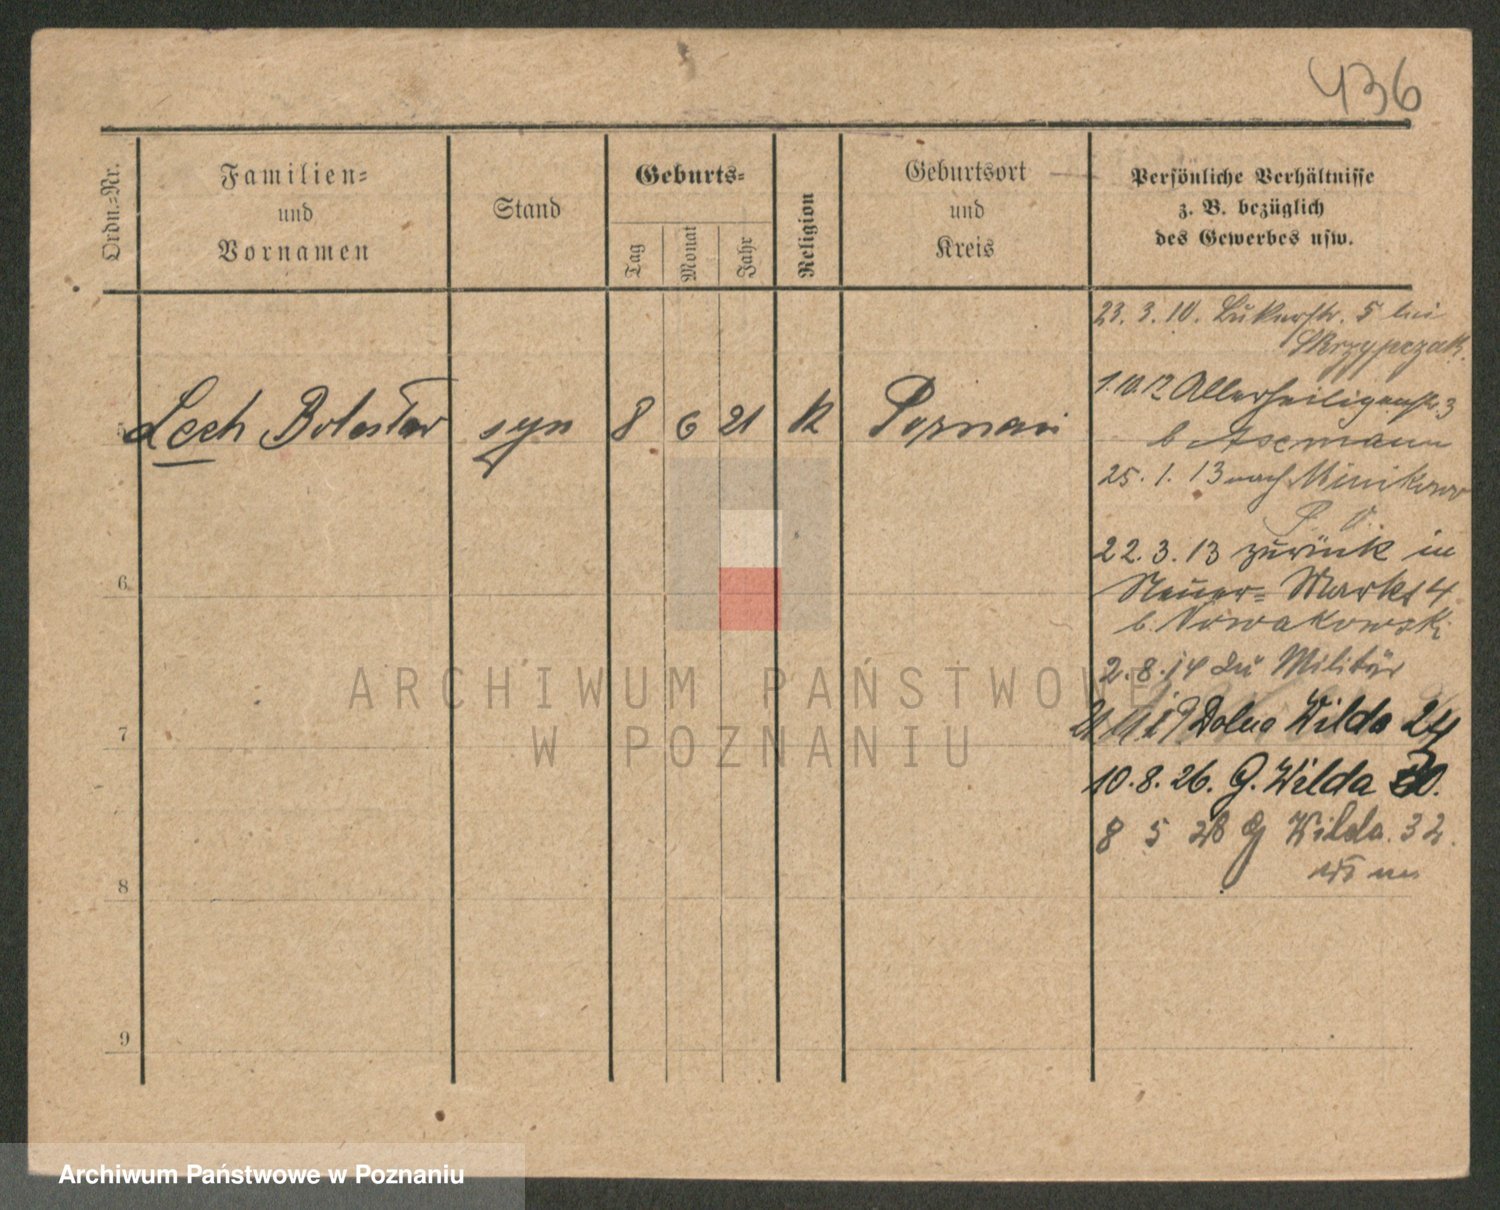 436
Ordn.-Nr.
Familien-
und
Vornamen
Stand
Geburts-
Tag
Monat
Jahr
Religion
Geburtsort
und
Kreis
Persönliche Verhältnisse
z. B. bezüglich
des Gewerbes usw.
23. 3. 10. 5 bei
Skrzypczak.
Lech Bolesław syn 8 6 21 k Poznań
1.10.12 Allerheiligenstr. 3
b Assmann
25. 1. 13 nach Minikowo
22. 3. 13 zurück in
6
Neuer- Markt 4
b. Nowakowski
2. 8. 14 zu Militär
Dolna Wilda 24
7
10. 8. 26. G. Wilda
8 5 28 G Wilda. 32.
8
9
ARCHIWUM PAŃSTWOWE
W POZNANIU
Archiwum Państwowe w Poznaniu